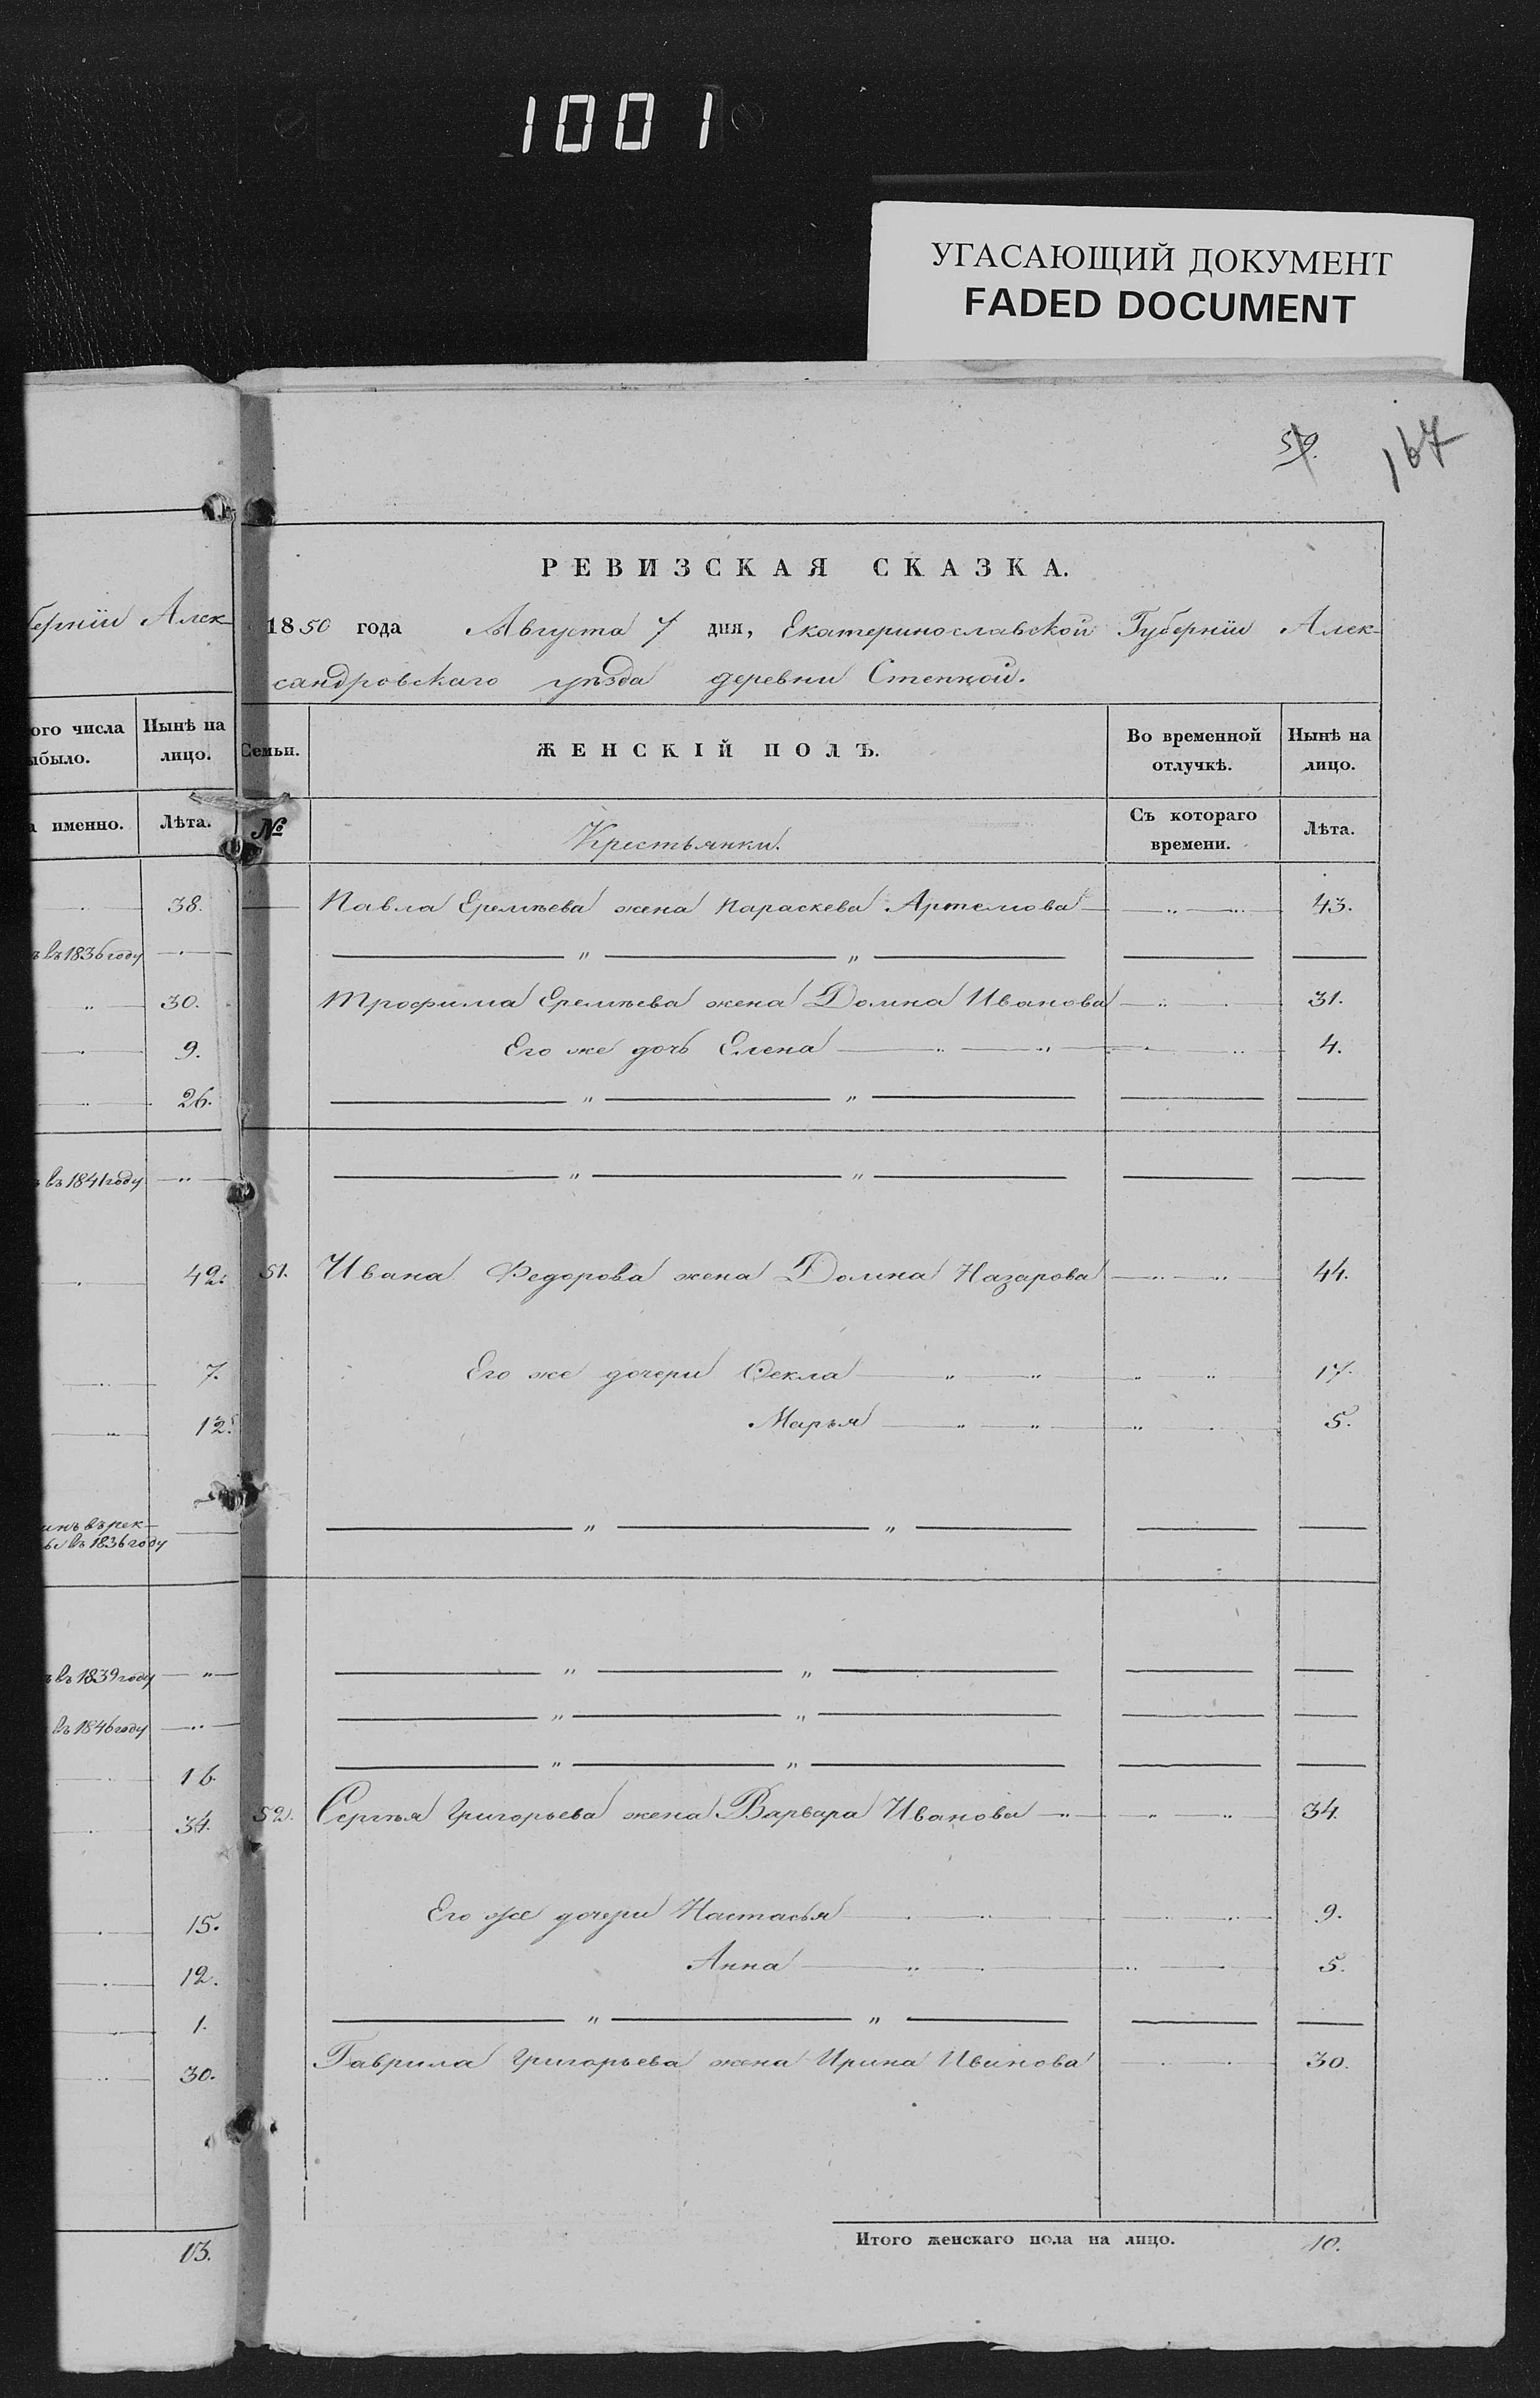 1001
УГАСАЮЩИЙ ДОКУМЕНТ
FADED DOCUMENT
59.
167
берніи Алек-
ого числа
было.
Нынѣ на
лицо.
именно.
Лѣта.
38.
въ 1836 году
30.
9.
26.
въ 1841 году
42.
7.
12.
въ рек-
въ 1836 году
въ 1839 году
въ 1846 году
16.
34.
15.
12.
1.
30.
13.
РЕВИЗСКАЯ СКАЗКА.
1850 года Августа 7 дня, Екатеринославской Губерніи Алек-
сандровскаго уѣзда деревни Степной.
Семьи.
ЖЕНСКІЙ ПОЛЪ.
Во временной
отлучкѣ.
Нынѣ на
лицо.
№
Крестьянки.
Съ котораго
времени.
Лѣта.
Павла Еремѣева жена Параскева Артемова 43.
Трофима Еремѣева жена Домна Иванова 31.
Его же дочь Елена 4.
51. Ивана Федорова жена Домна Назарова 44.
Его же дочери Ѳекла 17.
Марья 5.
52. Сергѣя Григорьева жена Варвара Иванова 34.
Его же дочери Настасья 9.
Анна 5.
Гаврила Григорьева жена Ирина Иванова 30.
Итого женскаго пола на лицо. 10.